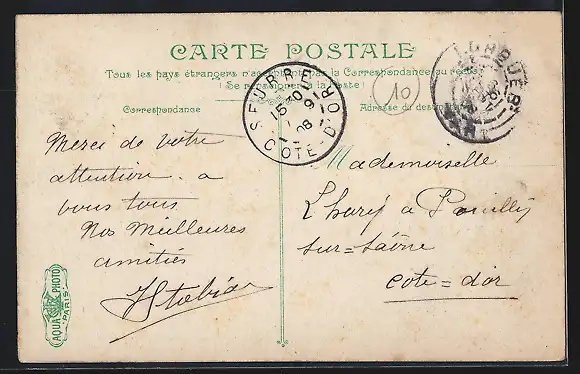 CARTE POSTALE
Tous les pays étrangers n'acceptent pas la Correspondance au recto
(Se renseigner à la Poste)
Correspondance
Adresse du destinataire
SEURRE
15-10
9
08
COTE-D'OR
10
Merci de votre
attention. a
vous tous
Nos Meilleures
amitiés
Mademoiselle
à Pouilly
sur=Saône
cote=d'or
AQUA PHOTO
PARIS